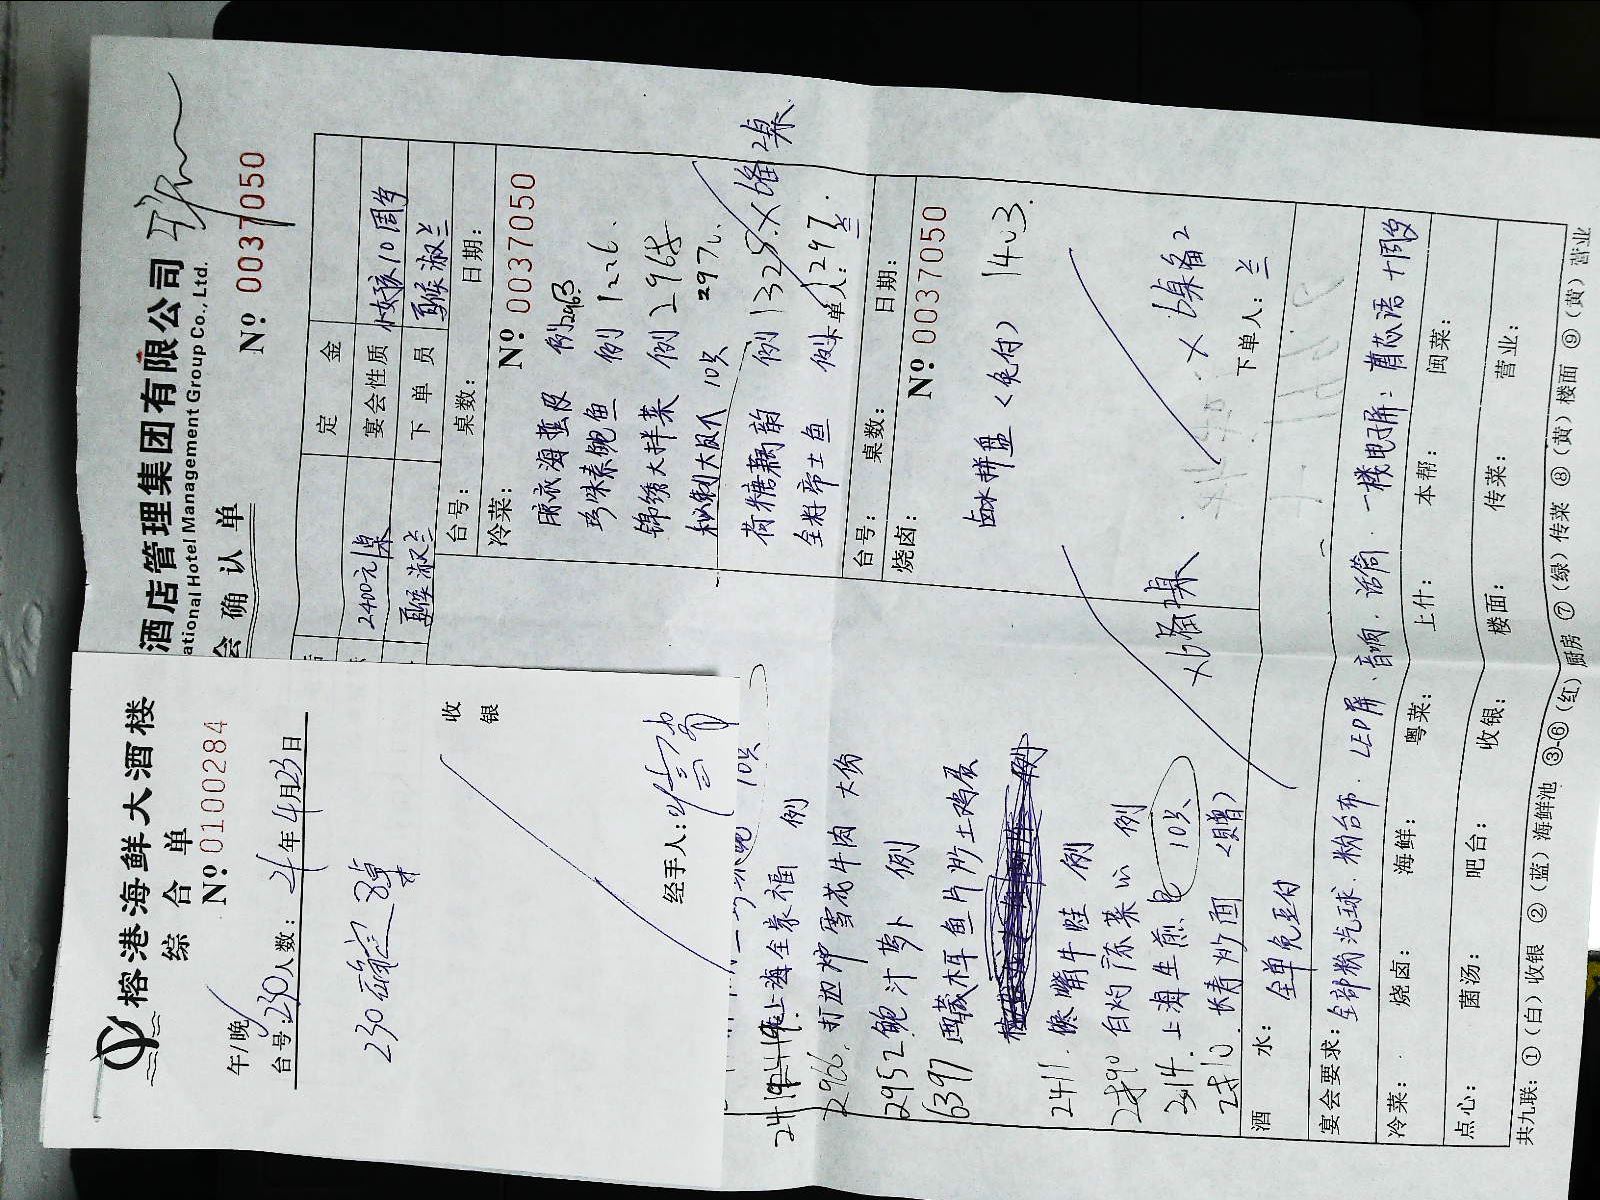 榕港海鲜大酒楼
综合单
Nº 0100284
午/晚
台号:230 人数: 年4月23日
230
收银
经手人:
酒店管理集团有限公司
ational Hotel Management Group Co., Ltd.
会确认单
Nº 0037050
定金
2400元/桌
宴会性质 女孩10周岁
夏候淑兰
下单员 夏候淑兰
台号: 桌数: 日期:
冷菜: Nº 0037050
海蜇皮 例 2963
珍味素鲍鱼 例 1226
锦绣大拌菜 例 2968
秘制大凤爪 10只 2972
荷塘藕韵 例 1328
全籽帝士鱼 例 1297
×6备2桌
下单人:兰
台号: 桌数: 日期:
烧卤: Nº 0037050
卤水拼盘<免付> 1403
×6桌备2
下单人:兰
10只
2419 上海全家福 例
2966 打边炉雪花牛肉 大份
2952 鲍汁萝卜 例
6397 西藏木耳鱼片炒土鸡蛋
2411 馋嘴牛蛙 例
2890 白灼广东菜心 例
2414 上海生煎包 10只
2810 长寿炒面 <赠>
×6备2桌
酒水: 全单免至付
宴会要求: 全部粉汽球、粉台布、LED屏、音响、话筒、一楼电子屏: 十周岁
冷菜: 烧卤: 海鲜: 粤菜: 上什: 本帮: 闽菜:
点心: 菌汤: 吧台: 收银: 楼面: 传菜: 营业:
共九联: ①(白)收银 ②(蓝)海鲜池 ③-⑥(红)厨房 ⑦(绿)传菜 ⑧(黄)楼面 ⑨(黄)营业